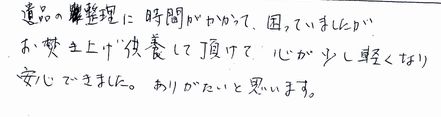 遺品の整理に時間がかかって、困っていましたが
お焚き上げ供養して頂けて心が少し軽くなり
安心できました。ありがたいと思います。